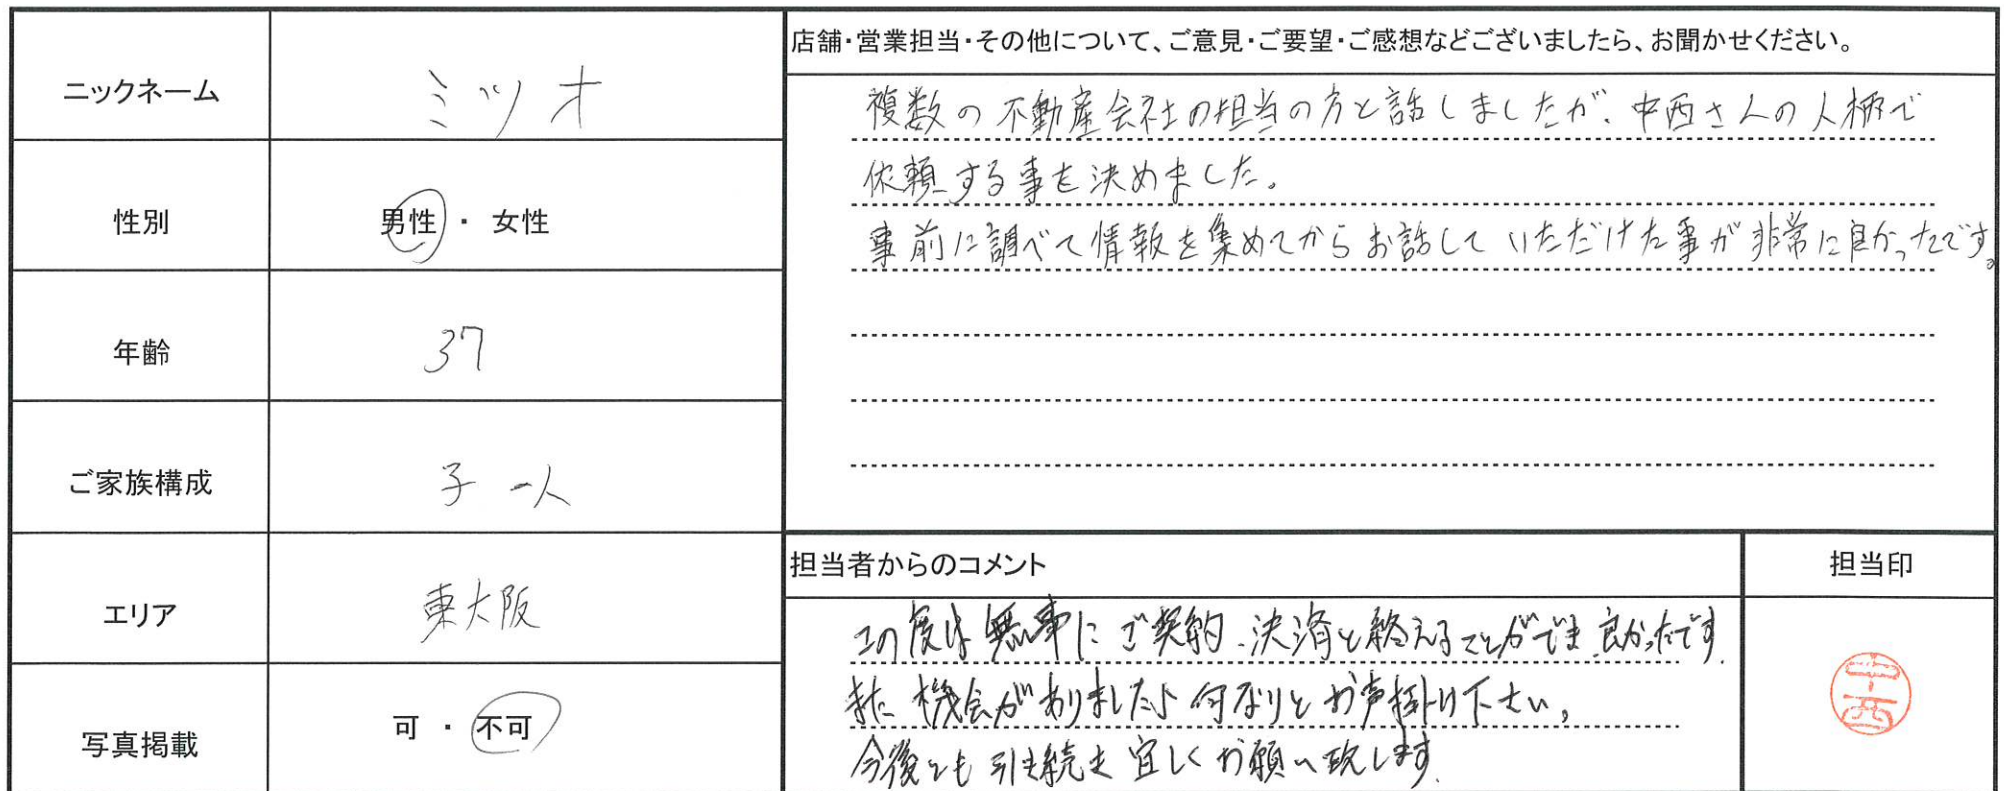 ニックネーム
ミツオ
性別
男性 ・ 女性
年齢
37
ご家族構成
子 一人
エリア
東大阪
写真掲載
可 ・ 不可
店舗・営業担当・その他について、ご意見・ご要望・ご感想などございましたら、お聞かせください。
複数の不動産会社の担当の方と話しましたが、中西さんの人柄で
依頼する事を決めました。
事前に調べて情報を集めてからお話していただけた事が非常に良かったです。
担当者からのコメント
この度は無事にご契約、決済と終えることができ良かったです
また機会がありましたら何なりとお声掛け下さい。
今後とも引き続き宜しくお願い致します。
担当印
中西